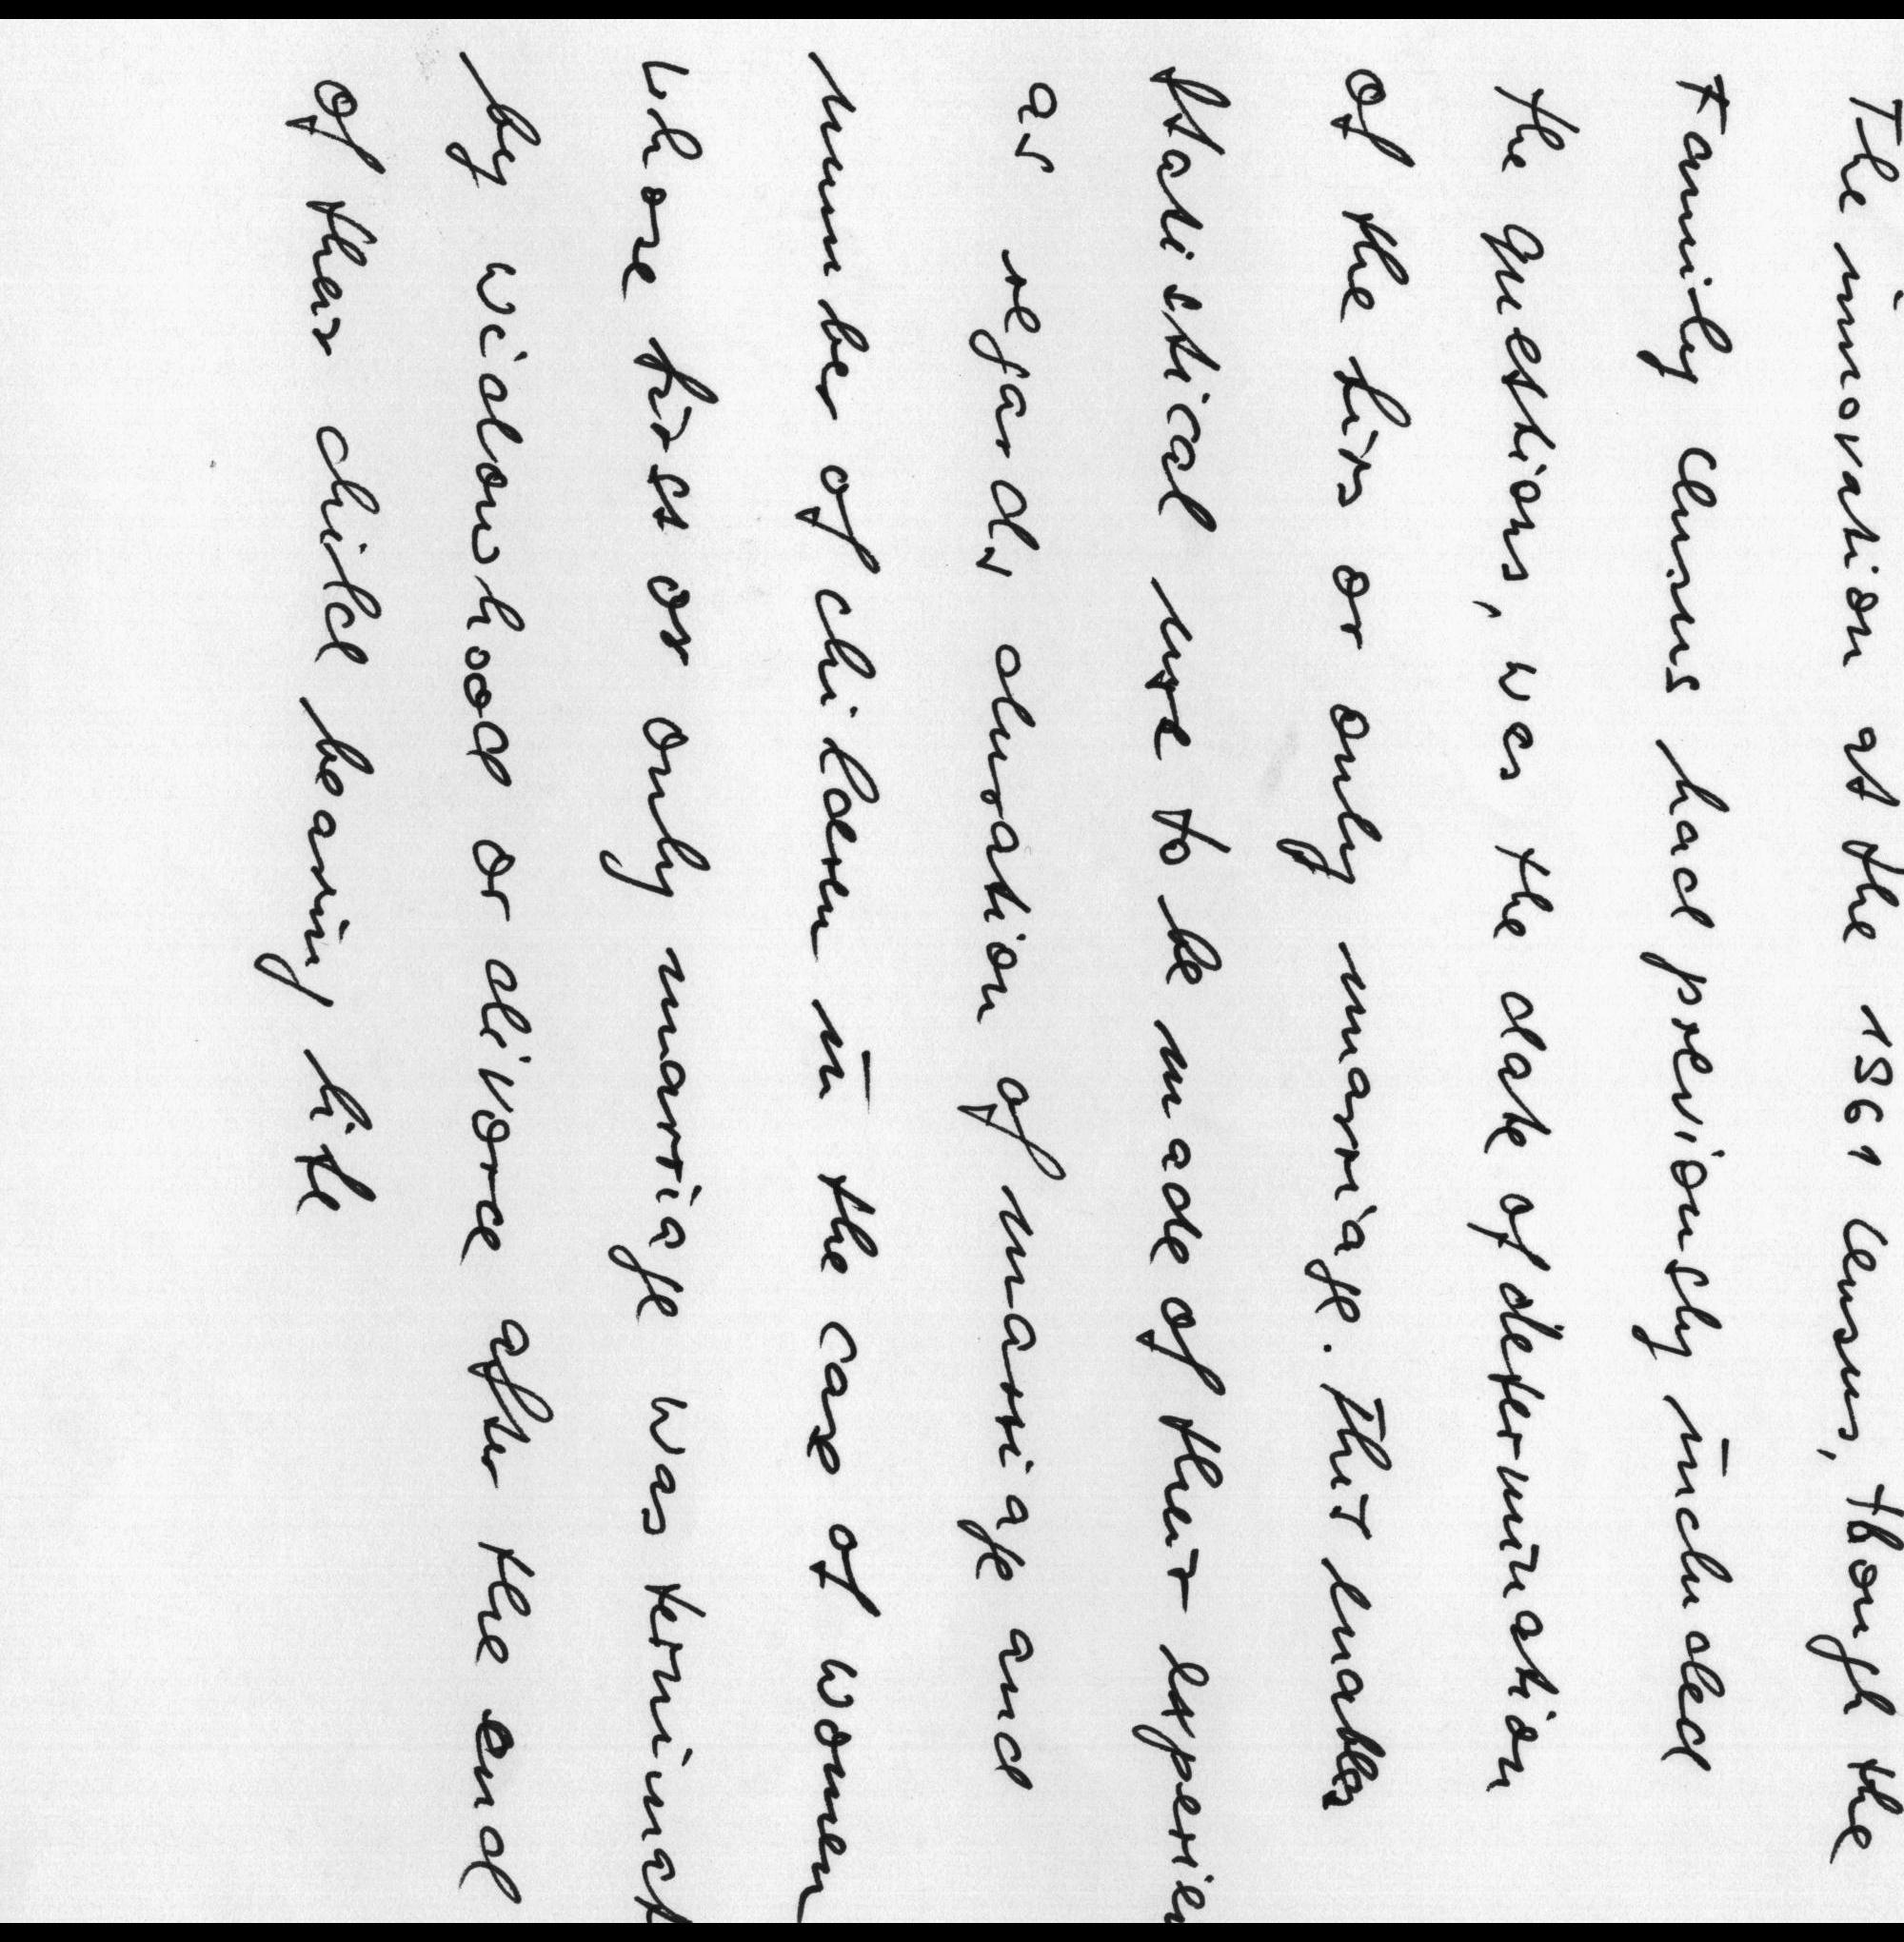 The innovation at the 1961 Census, though the
Family Census had previously included
the questions, was the date of determination
of the firs or only marriage. This enables
statistical use to be made of their experien
as regards duration of marriage and
number of children in the case of women
whose first or only marriage was terminat
by widowhood or divorce after the end
of their child bearing life